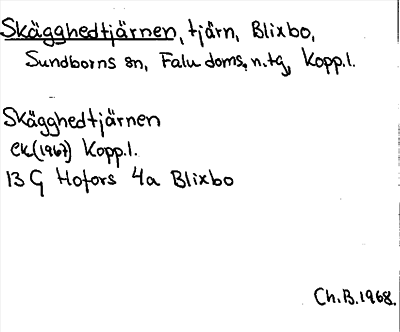 Skägghedtjärnen, tjärn, Blixbo,
Sundborns sn, Falu doms. n. tg, Kopp.l.
Skägghedtjärnen
ek(1967) Kopp.l.
13 G Hofors 4a Blixbo
Ch.B.1968.